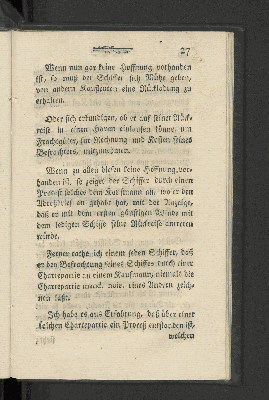 27
Wenn nun gar keine Hoffnung vorhanden
ist, so muß der Schiffer sich Mühe geben,
von andern Kaufleuten eine Rükladung zu
erhalten.
Oder sich erkundigen, ob er auf seiner Rük-
reise in einen Haven einlaufen könne, um
Frachtgüter, für Rechnung und Kosten seines
Befrachters, mitzunehmen.
Wenn zu allen diesen keine Hoffnung vor-
handen ist, so zeiget der Schiffer durch einen
Protest solches dem Kaufmann an, wo er den
Adreßbrief an gehabt hat, mit der Anzeige,
daß er mit dem ersten günstigen Winde mit
dem ledigen Schiffe seine Rükreise antreten
würde.
Ferner rathe ich einem jeden Schiffer, daß
er den Befrachtung seines Schiffes durch einer
Chartepartie an einem Kaufmann, niemals die
Chartepartie von einen Andern zeich-
nen läßt.
Ich habe es aus Erfahrung, daß über einer
solchen Chartepartie ein Proceß entstanden ist,
welchen